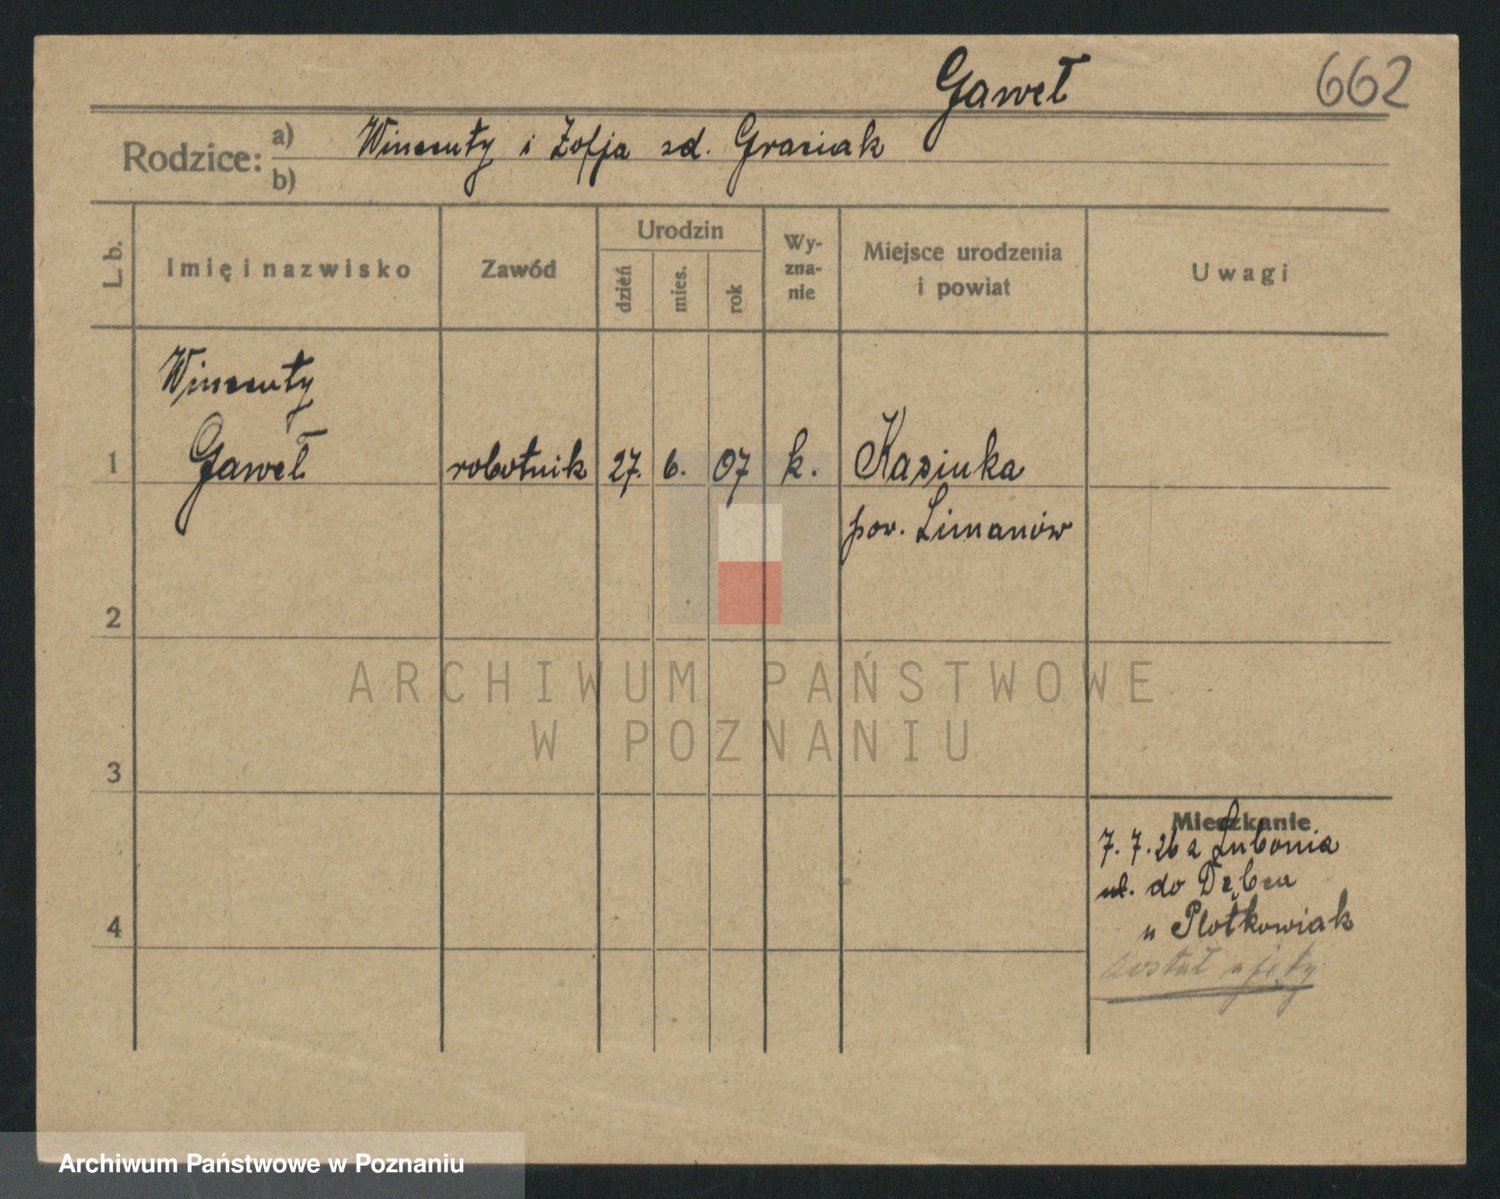 Gaweł
662
Rodzice:
a) Wincenty i Zofja zd. Graciak
b)
L. b.
Imię i nazwisko
Zawód
Urodzin
dzień
mies.
rok
Wy-
zna-
nie
Miejsce urodzenia
i powiat
Uwagi
Wincenty
1 Gaweł robotnik 27. 6. 07 k. Kasinka
pow. Limanów
2
ARCHIWUM PAŃSTWOWE
W POZNANIU
3
Mieszkanie
7. 7. 26 z Lubonia
do Dębca
u Plotkowiak
4
został ujęty
Archiwum Państwowe w Poznaniu